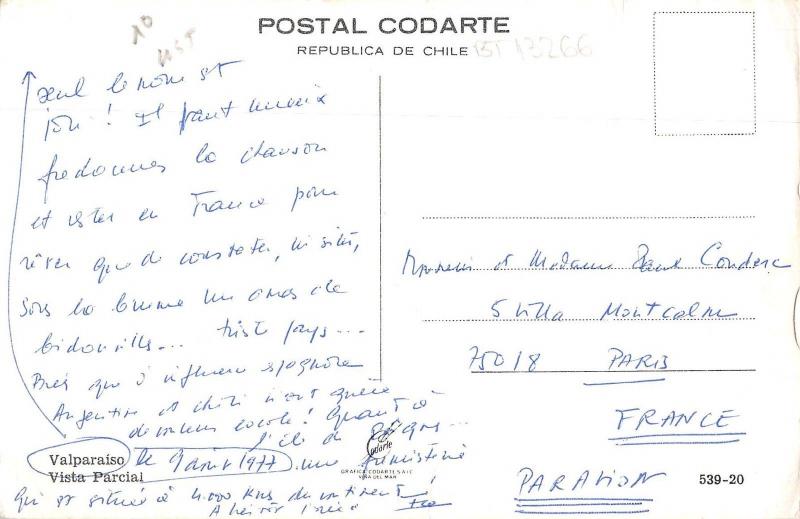 POSTAL CODARTE
REPUBLICA DE CHILE
BST 13266
seul le nom est
joli ! Il faut mieux
fredonner la chanson
et rester en France pour
rêver que de constater, ici situé,
sous la brume un amas de
bidonvilles... triste pays...
Bref que d'influence espagnole
Argentine et chili n'ont guère
de couleur locale ! Quant à
l'île de Pâques...
Valparaíso le 9 août 1977 une fumisterie
Vista Parcial
qui est située à 4.000 kms du continent !
A bientôt
Monsieur et Madame Paul Conderc
5 Villa Montcalm
75018 PARIS
FRANCE
PAR AVION
Codarte
GRAFICA CODARTE S.A.I.C.
VIÑA DEL MAR
539-20